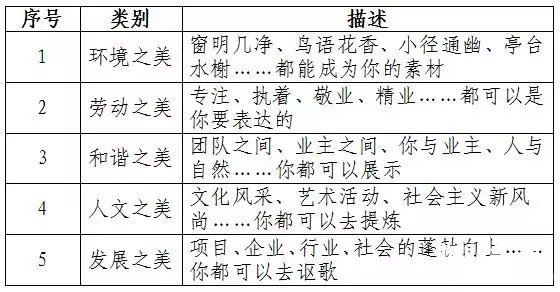 序号 类别 描述
1 环境之美 窗明几净、鸟语花香、小径通幽、亭台
水榭……都能成为你的素材
2 劳动之美 专注、执着、敬业、精业……都可以是
你要表达的
3 和谐之美 团队之间、业主之间、你与业主、人与
自然……你都可以展示
4 人文之美 文化风采、艺术活动、社会主义新风
尚……你都可以去提炼
5 发展之美 项目、企业、行业、社会的蓬勃向上……
你都可以去讴歌